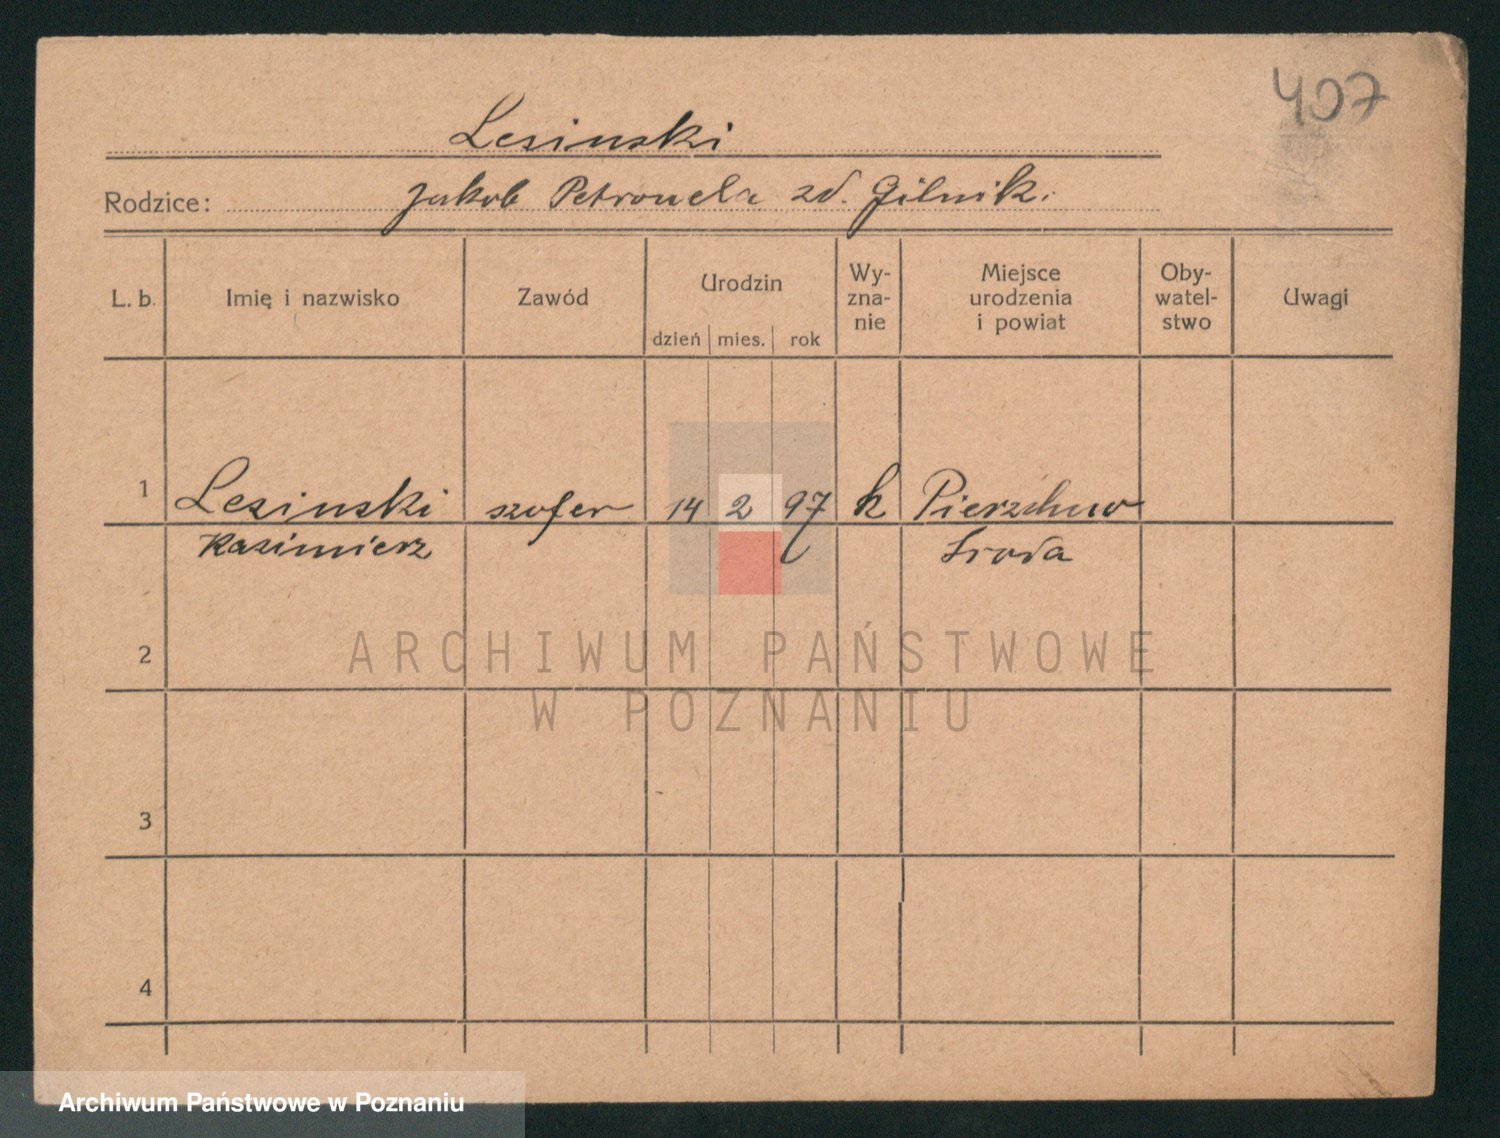 407
Lesinski
Rodzice: Jakob Petronela zd. Gilnik.
L. b. Imię i nazwisko Zawód Urodzin Wy- Miejsce Oby- Uwagi
zna- urodzenia watel-
nie i powiat stwo
dzień mies. rok
1 Lesinski szofer 14 2 97 k Pierzchno
Kazimierz Sroda
2
ARCHIWUM PAŃSTWOWE
W POZNANIU
3
4
Archiwum Państwowe w Poznaniu